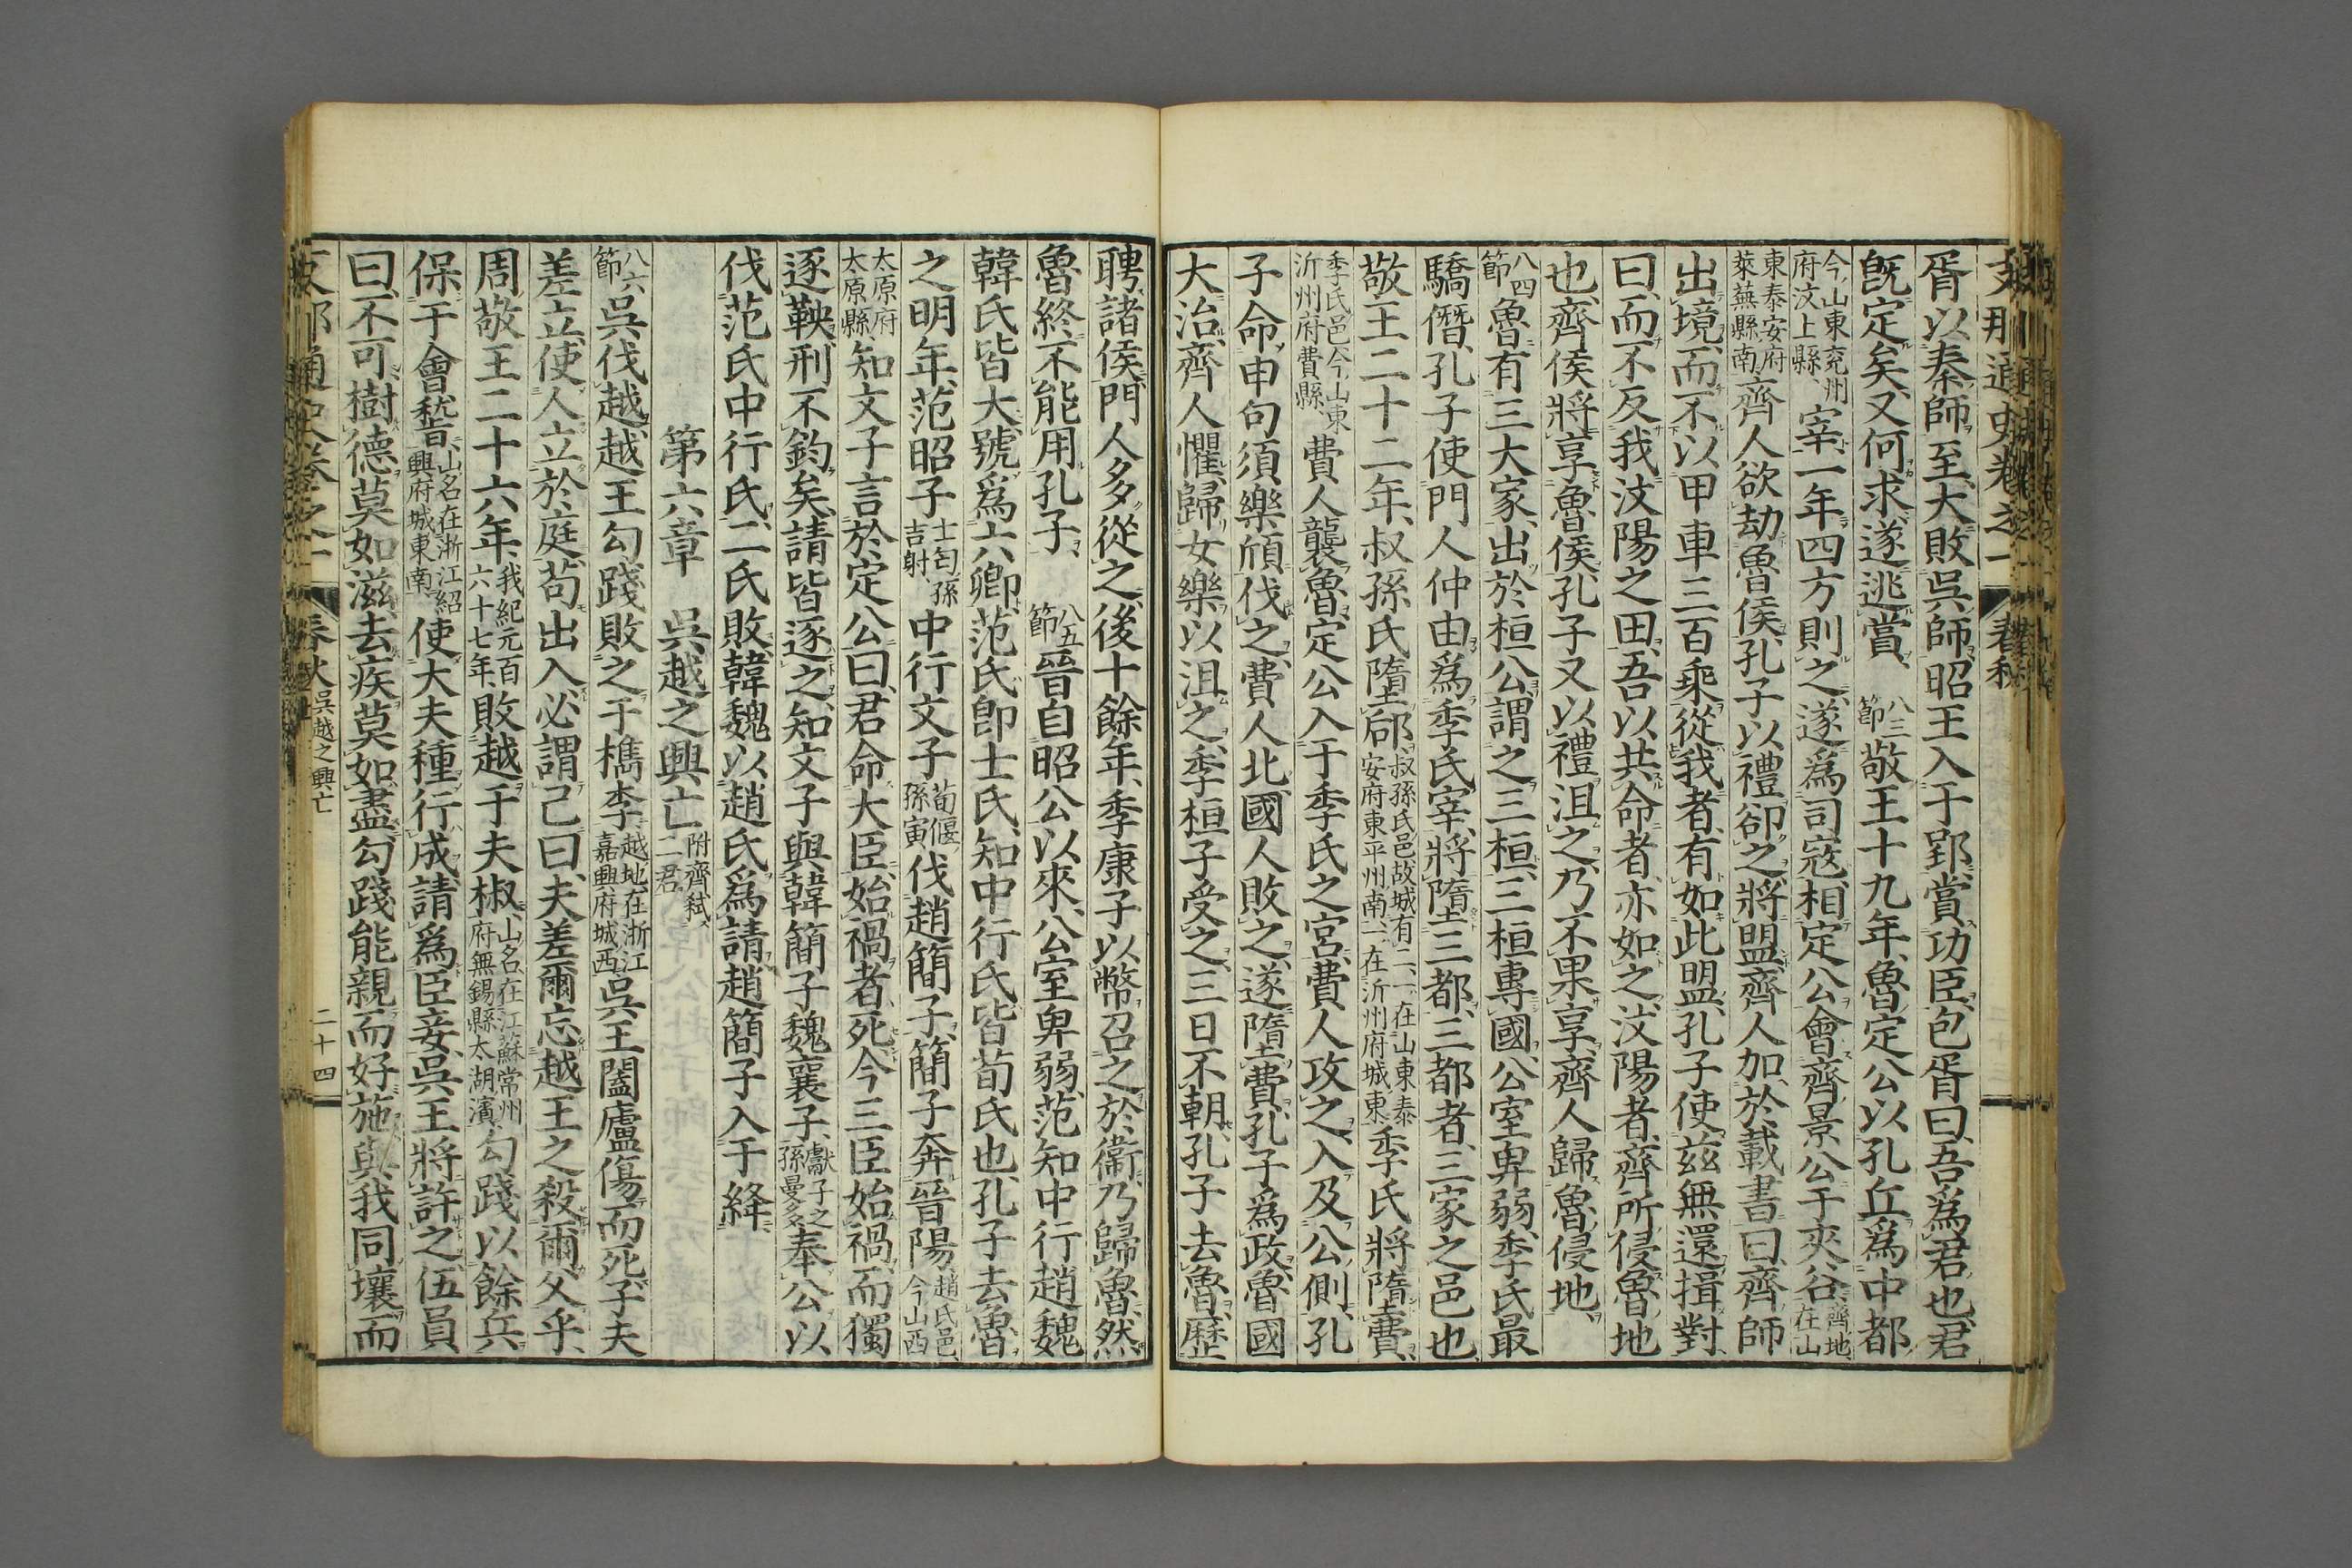 支那通史卷之一 春秋
胥以秦師至、大敗吳師、昭王入于郢、賞功臣、包胥曰、吾爲君也、君
既定矣、又何求、遂逃賞、八三節敬王十九年、魯定公以孔丘爲中都
今山東兗州府汶上縣、宰、一年四方則之、遂爲司寇、相定公會齊景公于夾谷、齊地、在山
東泰安府萊蕪縣南、齊人欲劫魯侯、孔子以禮卻之、將盟、齊人加於載書曰、齊師
出境、而不以甲車三百乘從我者、有如此盟、孔子使玆無還揖對
曰、而不反我汶陽之田、吾以共命者、亦如之、汶陽者、齊所侵魯地
也、齊侯將享魯侯、孔子又以禮沮之、乃不果享、齊人歸魯侵地、
八四節魯有三大家、出於桓公、謂之三桓、三桓專國、公室卑弱、季氏最
驕僭、孔子使門人仲由爲季氏宰、將隳三都、三都者、三家之邑也、
敬王二十二年、叔孫氏隳郈、叔孫氏邑、故城有二、一在山東泰安府東平州南、一在沂州府城東、季氏將隳費、
季氏邑、今山東沂州府費縣、費人襲魯、定公入于季氏之宮、費人攻之、入及公側、孔
子命申句須樂頎伐之、費人北、國人敗之、遂隳費、孔子爲政、魯國
大治、齊人懼、歸女樂以沮之、季桓子受之、三日不朝、孔子去魯、歷
聘諸侯、門人多從之、後十餘年、季康子以幣召之於衞、乃歸魯、然
魯終不能用孔子、八五節晉自昭公以來、公室卑弱、范知中行趙魏
韓氏皆大、號爲六卿、范氏卽士氏、知中行氏、皆荀氏也、孔子去魯
之明年、范昭子士匄孫吉射中行文子荀偃孫寅伐趙簡子、簡子奔晉陽、趙氏邑、今山西
太原府太原縣、知文子言於定公曰、君命大臣、始禍者死、今三臣始禍、而獨
逐鞅、刑不鈞矣、請皆逐之、知文子與韓簡子魏襄子獻子之孫曼多、奉公以
伐范氏中行氏、二氏敗、韓魏以趙氏爲請、趙簡子入于絳、
第六章 吳越之興亡附齊弒二君
八六節吳伐越、越王勾踐敗之于檇李、越地、在浙江嘉興府城西、吳王闔廬傷而死、子夫
差立、使人立於庭、苟出入、必謂己曰、夫差爾忘越王之殺爾父乎、
周敬王二十六年、我紀元百六十七年、敗越于夫椒、山名、在江蘇常州府無錫縣太湖濱、勾踐以餘兵
保于會嵇、山名、在浙江紹興府城東南、使大夫種行成、請爲臣妾、吳王將許之、伍員
曰、不可、樹德莫如滋、去疾莫如盡、勾踐能親而好施、與我同壤而
支那通史卷之一 春秋 吳越之興亡 二十四